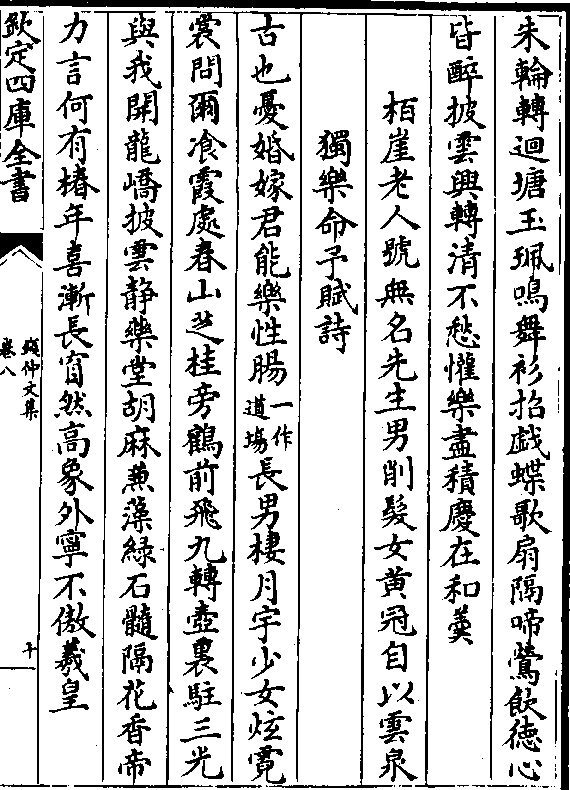 朱輪轉迴塘玉珮鳴舞衫招戯蝶歌扇隔啼鶯飲德心
皆醉披雲興轉清不愁懽樂盡積慶在和羹
栢崖老人號無名先生男削髮女黄冠自以雲泉
獨樂命予賦詩
古也憂婚嫁君能樂性腸一作道塲長男棲月宇少女炫霓
裳問爾飡霞處春山芝桂旁鶴前飛九轉壺裏駐三光
與我開龍嶠披雲静藥堂胡麻兼藻緑石髓隔花香帝
力言何有椿年喜漸長窅然高象外寧不傲羲皇
欽定四庫全書
錢仲文集
卷八